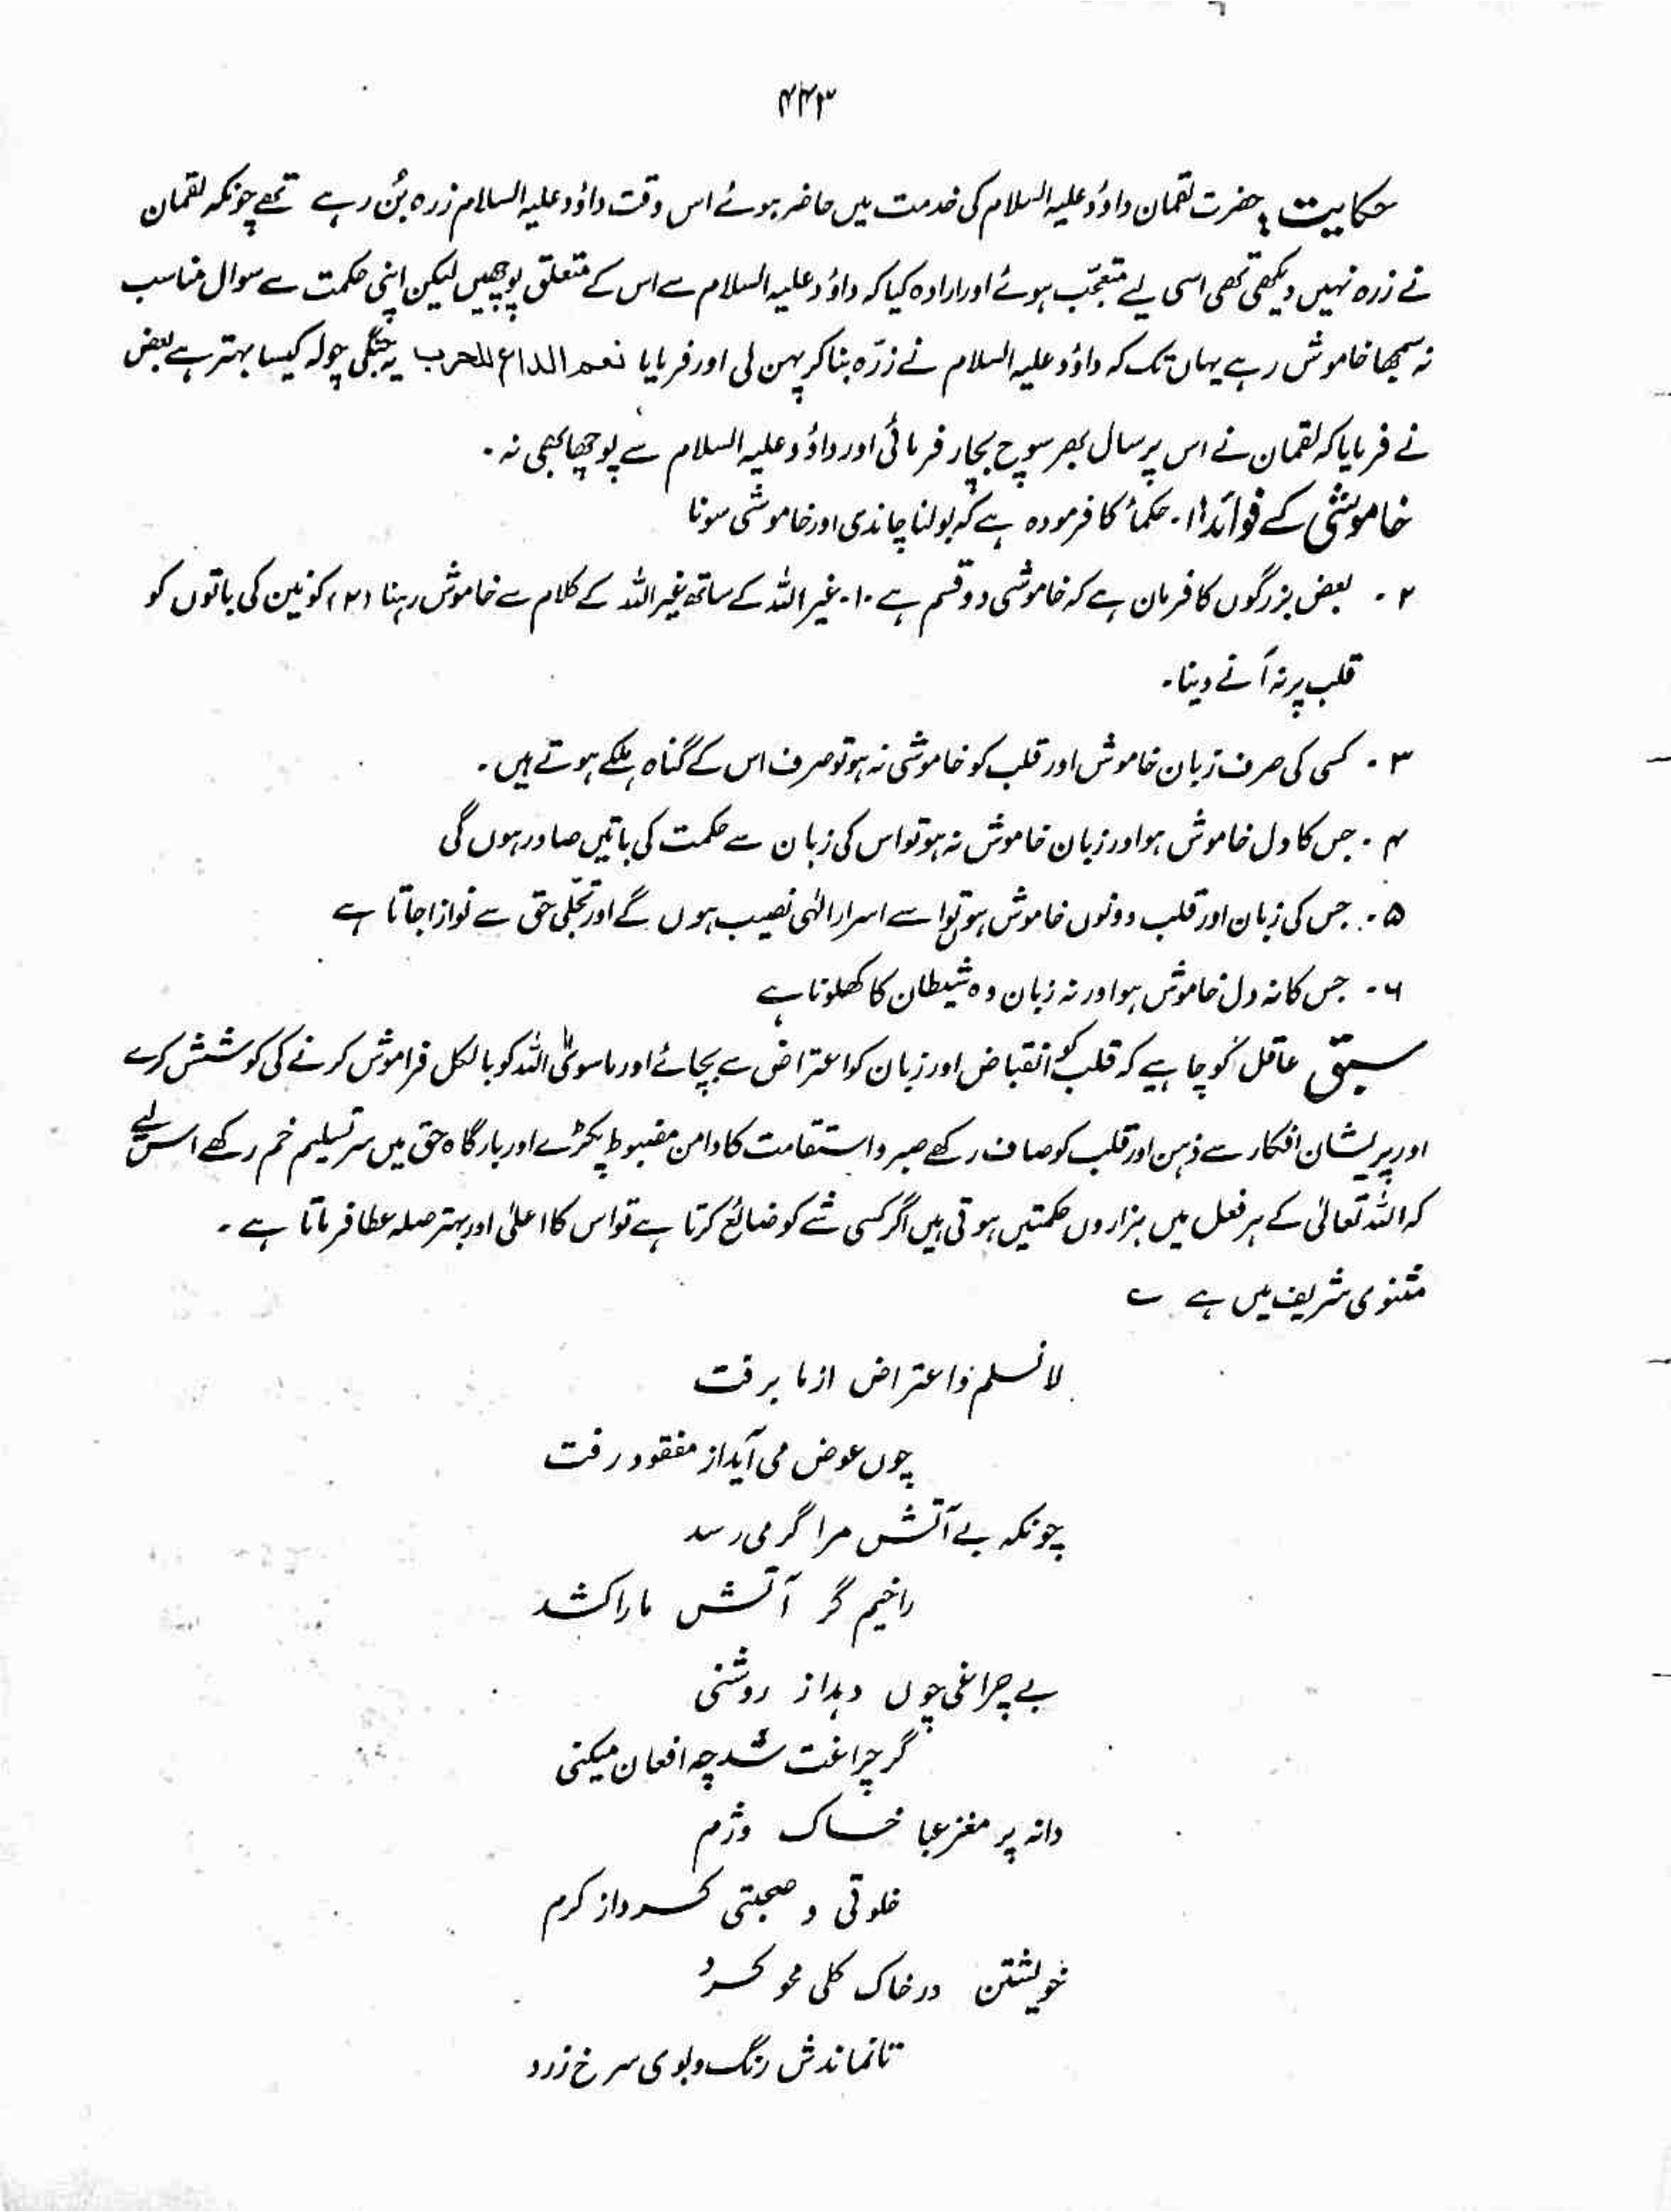 ۴۴۳
حکایت ؛ حضرت لقمان داؤد علیہ السلام کی خدمت میں حاضر ہوئے اس وقت داؤد علیہ السلام زرہ بُن رہے تھے چونکہ لقمان
نے زرہ نہیں دیکھی تھی اسی لیے متعجّب ہوئے اور ارادہ کیا کہ داؤد علیہ السلام سے اس کے متعلق پوچھیں لیکن اپنی حکمت سے سوال مناسب
نہ سمجھا خاموش رہے یہاں تک کہ داؤد علیہ السلام نے زرّہ بنا کر پہن لی اور فرمایا نعم الداع للحرب یہ جنگی چولہ کیسا بہتر ہے بعض
نے فرمایا کہ لقمان نے اس پر سال بھر سوچ بچار فرمائی اور داؤد علیہ السلام سے پوچھا بھی نہ ۔
خاموشی کے فوائد ۱۔ حکماً کا فرمودہ ہے کہ بولنا چاندی اور خاموشی سونا
۲ ۔ بعض بزرگوں کا فرمان ہے کہ خاموشی دو قسم ہے ۔۱۔ غیر اللہ کے ساتھ غیر اللہ کے کلام سے خاموش رہنا (۲) کونین کی باتوں کو
قلب پر نہ آنے دینا۔
۳ ۔ کسی کی صرف زبان خاموش اور قلب کو خاموشی نہ ہو تو صرف اس کے گناہ ہلکے ہوتے ہیں ۔
۴ ۔ جس کا دل خاموش ہو اور زبان خاموش نہ ہو تو اس کی زبان سے حکمت کی باتیں صادر ہوں گی
۵ ۔ جس کی زبان اور قلب دونوں خاموش ہوں تو اسے اسرار الٰہی نصیب ہوں گے اور تجلّی حق سے نوازا جاتا ہے
۶ ۔ جس کا نہ دل خاموش ہو اور نہ زبان وہ شیطان کا کھلونا ہے
سبق عاقل کو چاہیے کہ قلب کو انقباض اور زبان کو اعتراض سے بچائے اور ماسویٰ اللہ کو بالکل فراموش کرنے کی کوشش کرے
اور پریشان افکار سے ذہن اور قلب کو صاف رکھے صبر و استقامت کا دامن مضبوط پکڑے اور بارگاہ حق میں سر تسلیم خم رکھے اس لیے
کہ اللہ تعالیٰ کے ہر فعل میں ہزاروں حکمتیں ہوتی ہیں اگر کسی شے کو ضائع کرتا ہے تو اس کا اعلیٰ اور بہتر صلہ عطا فرماتا ہے ۔
مثنوی شریف میں ہے ؎
لانسلم واعتراض از ما برفت
چوں عوض می آید از مفقود رفت
چونکہ بے آتش مرا گرمی رسد
راضیم گر آتش مارا کشد
بے چراغی چوں دہد از روشنی
گر چراغت شد چہ افغان میکنی
دانہ پر مغز با خاک وژم
خلوتی و صحبتی کرد از کرم
خویشتن در خاک کلی محو کرد
تانماندش رنگ و بوی سرخ زرد